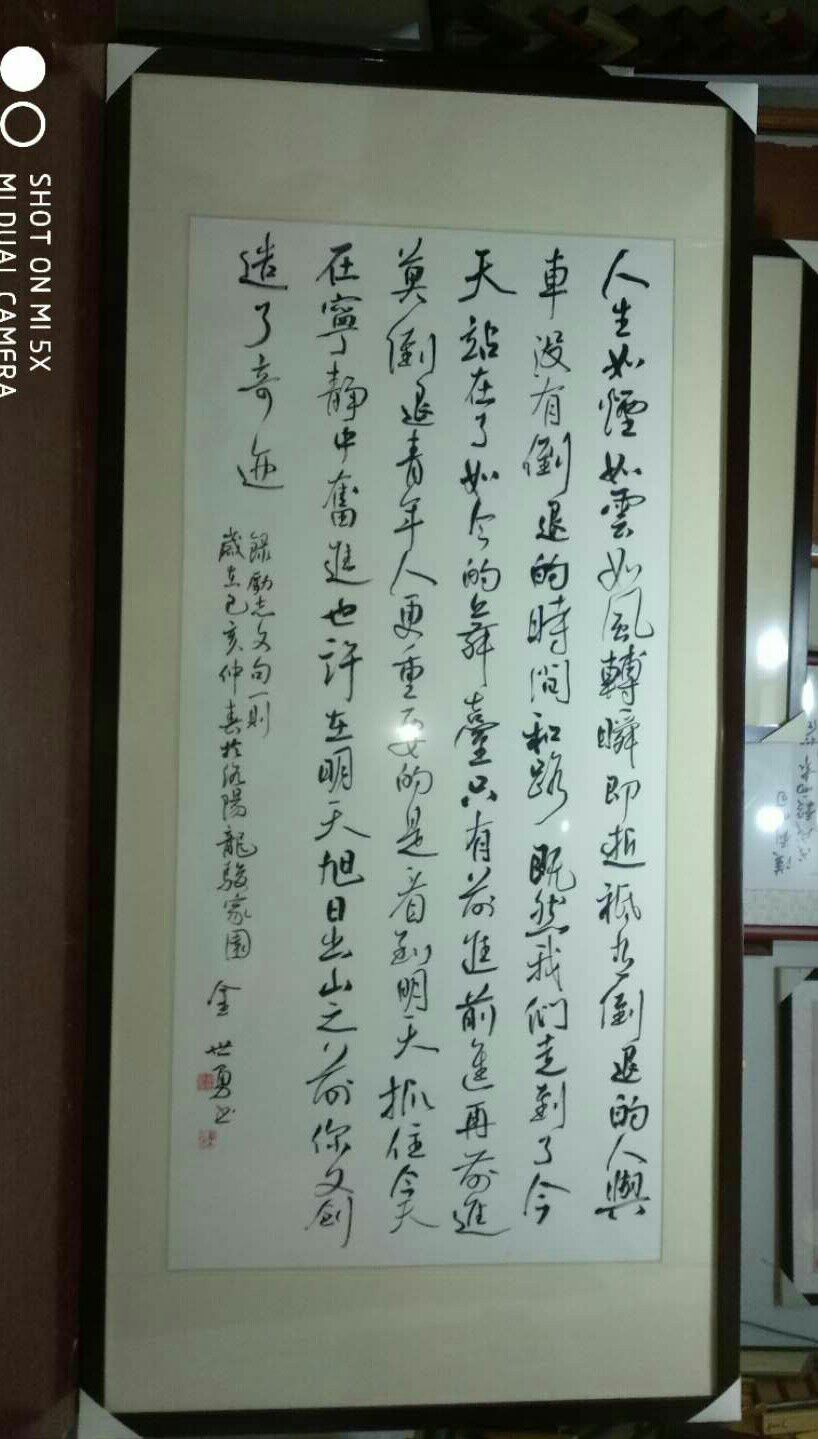 人生如煙如雲如風轉瞬即逝祇有倒退的人與
車没有倒退的時間和路既然我們走到了今
天站在了如今的舞臺只有前進前進再前進
莫倒退青年人更重要的是看到明天抓住今天
在寧靜中奮進也許在明天旭日出山之前你又創
造了奇迹
録勵志文句一則
歲在己亥仲春於洛陽龍駿家園
金世勇书
SHOT ON MI 5X
MI DUAL CAMERA